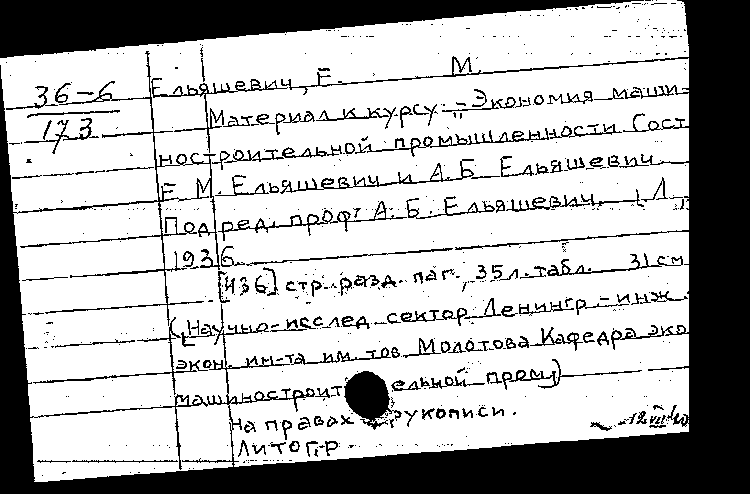 36-6
173
Ельяшевич, Е. М.
Материал к курсу: "Экономия маши-
ностроительной промышленности. Сост.
Е. М. Ельяшевич и А. Б. Ельяшевич.
Под ред. проф. А. Б. Ельяшевич. Л.,
1936.
[436] стр. разд. паг., 35 л. табл. 31 см
(Научно-исслед. сектор Ленингр. инж.
экон. ин-та им. тов. Молотова Кафедра эко
машиностроительной пром.)
На правах рукописи.
Литогр.